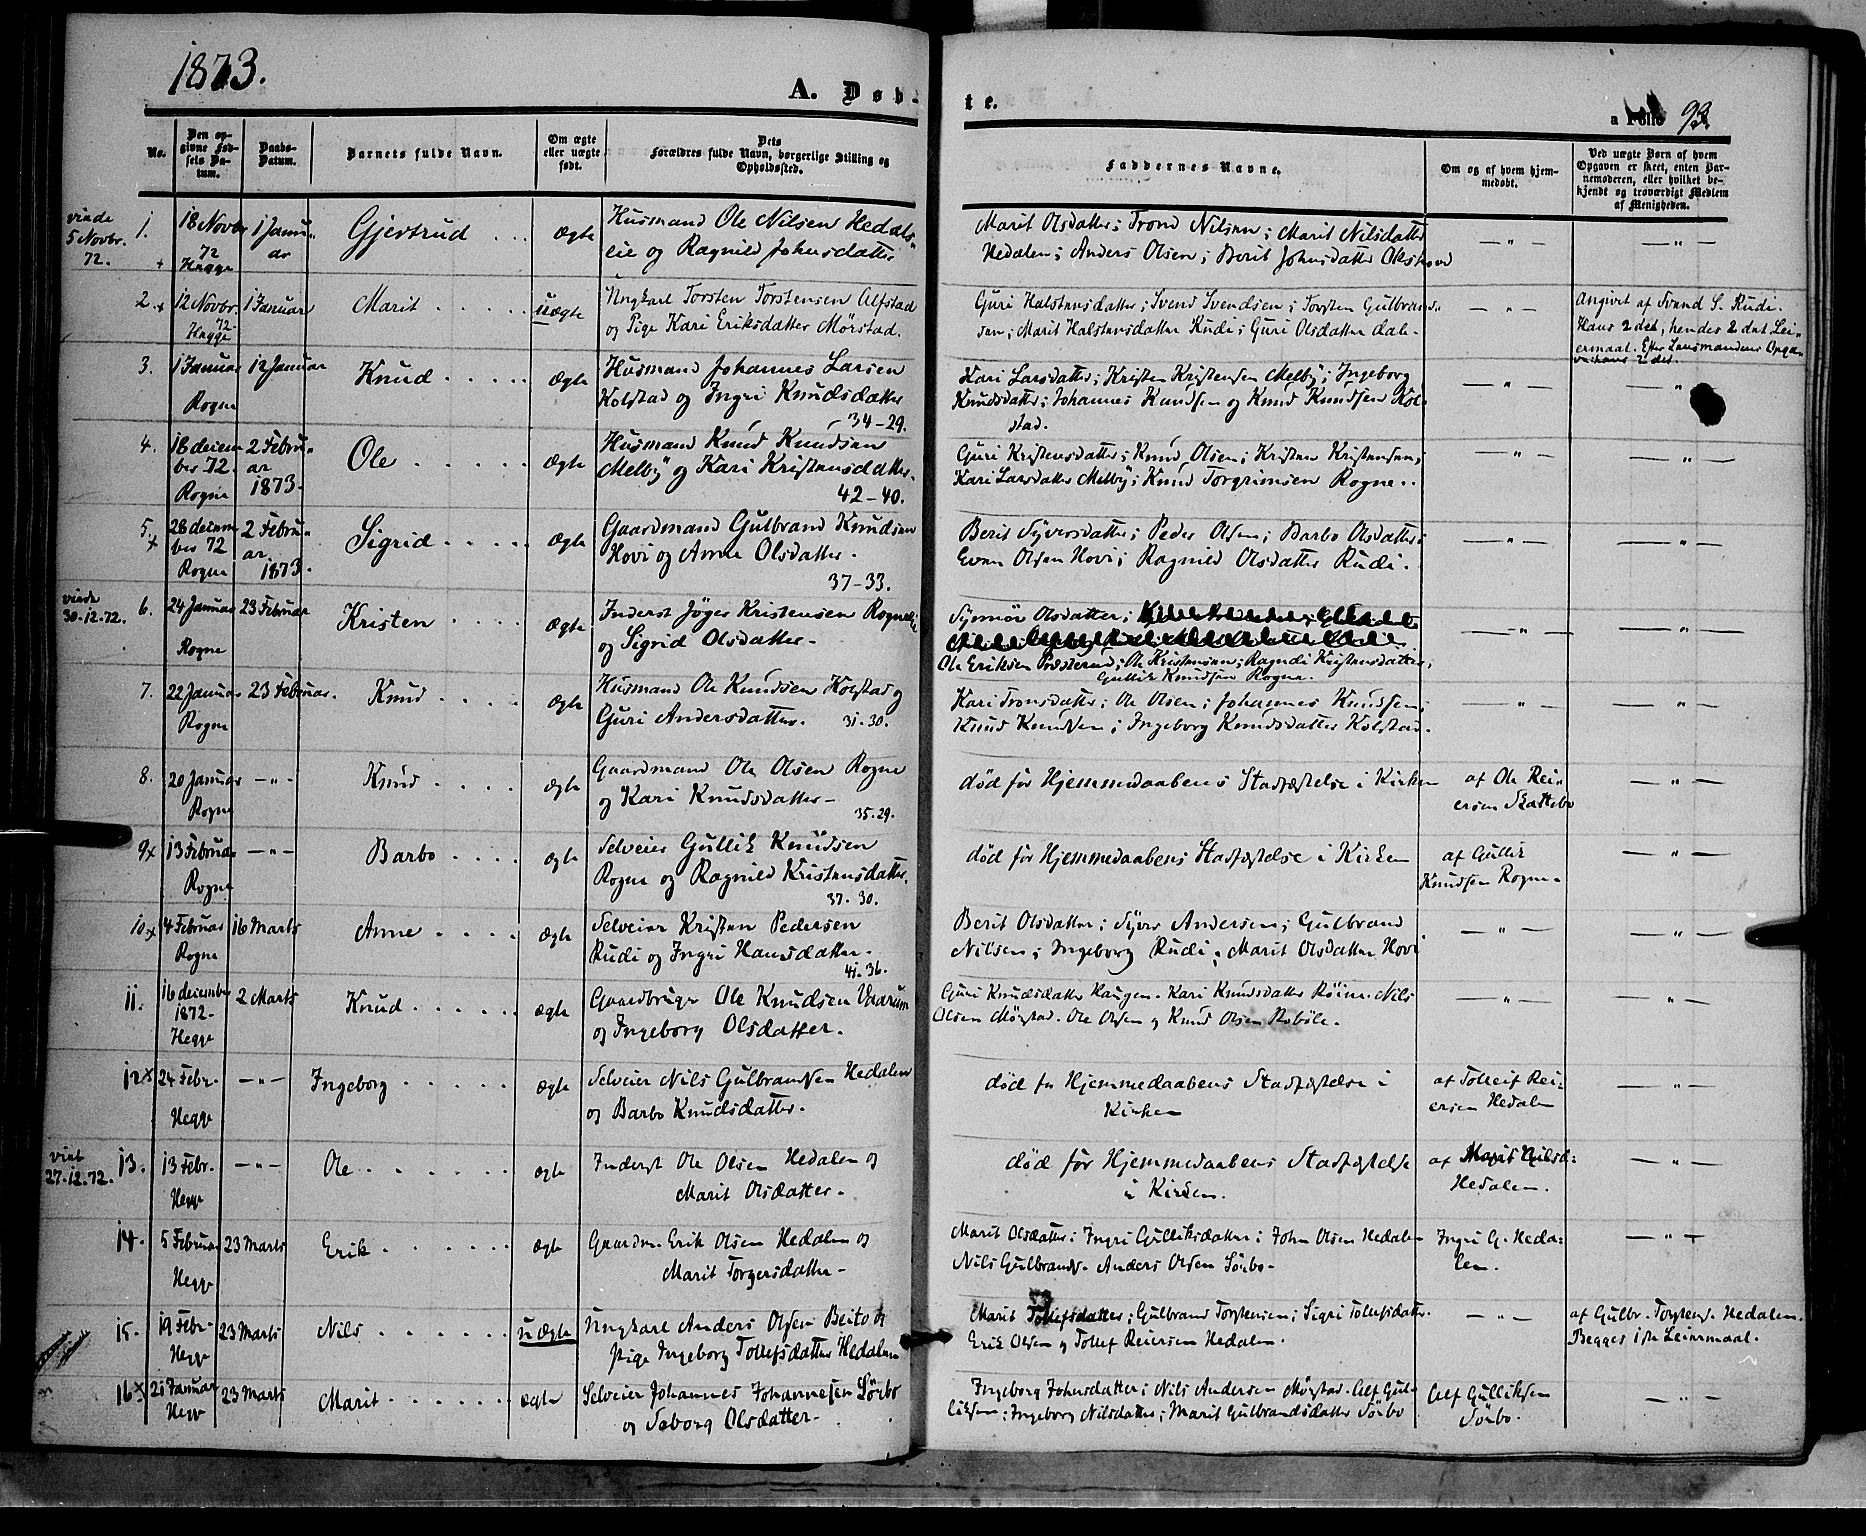 1873.
A. Døb-
te.
a Folio 93.
No.
Den opgivne Fødsels Datum.
Daabs-Datum.
Barnets fulde Navn.
Om ægte eller uægte født.
Dets Forældres fulde Navn, borgerlige Stilling og Opholdssted.
Faddernes Navne.
Om og af hvem hjemmedøbt.
Ved uægte Børn af hvem Opgaven er skeet, enten Barnemoderen, eller hvilket bekjendt og troværdigt Medlem af Menigheden.
viede
5 Novbr.
72.
1.
18 Novbr
72
Hegge
1 Janu-
ar
Gjertrud
ægte
Husmand Ole Nilsen Hedals-
eie og Ragnild Johnsdatter
Marit Olsdatter; Trond Nilsen; Marit Nilsdatter
Hedalen; Anders Olsen; Berit Johnsdatter
— " —
— " —
2.
12 Novbr.
72
Hegge
1 Januar
Marit
uægte
Ungkarl Torsten Torstensen Alfstad
og Pige Kari Eriksdatter Mørstad.
Guri Halstensdatter; Svend Svendsen; Torsten Gulbrand-
sen; Marit Halstensdatter Rudi; Guri Olsdatter Dal-
— " —
Angivet af Svend S. Rudi.
Hans 2det, hendes 2det Lei-
ermaal. Efter Lensmandens Opga-
ve hans 2det
3.
1 Januar
Rogne
12 Januar
Knud
ægte
Husmand Johannes Larsen
Kolstad og Ingri Knudsdatter
34-29.
Kari Larsdatter; Kristen Kristensen Melby; Ingeborg
Knudsdatter; Johannes Knudsen og Knud Knudsen Kol-
stad.
— " —
— "
4.
16 decem-
ber 72.
Rogne
2 Febru-
ar
1873.
Ole
ægte
Husmand Knud Knudsen
Melby og Kari Kristensdatter
42-40.
Guri Kristensdatter; Knud Olsen; Kristen Kristensen;
Kari Larsdatter Melby; Knud Torgrimsen Rogne.
— " —
— " —
5.
28 decem-
ber 72
Rogne
2 Febru-
ar
1873.
Sigrid
ægte
Gaardmand Gulbrand Knudsen
Hovi og Anne Olsdatter-
37-33.
Berit Syversdatter; Peder Olsen; Barbo Olsdatter;
Even Olsen Hovi; Ragnild Olsdatter Rudi.
— " —
— " —
viede
30-12-72.
6.
24 Januar
Rogne
23 Februar
Kristen
ægte
Inderst Jøger Kristensen Rogne
og Sigrid Olsdatter-
Synnør Olsdatter;
Ole Eriksen Præsterud; Ole Kristensen; Ragndi Kristensdatter;
Gullik Knudsen Rogne.
— " —
— " —
7.
22 Januar
Rogne
23 Februar.
Knud
ægte
Husmand Ole Knudsen Kolstad og
Guri Andersdatter. 31-30.
Kari Tronsdatter; Ole Olsen; Johannes Knudsen;
Knud Knudsen; Ingeborg Knudsdatter Kolstad.
— " —
— " —
8.
20 Januar
Rogne
— " —
Knud
ægte
Gaardmand Ole Olsen Rogne
og Kari Knudsdatter-
35-29.
død før Hjemmedaabens Stadfæstelse i Kirken
af Ole Rei-
ersen Skattebo
— " —
9
13 Februar
Rogne
— " —
Barbo
ægte
Selveier Gullik Knudsen
Rogne og Ragnild Kristensdatter.
37-30.
død før Hjemmedaabens Stadfæstelse i Kirken
af Gullik
Knudsen Rogne-
— " —
10
4 Februar
Rogne
16 Marts
Anne
ægte
Selveier Kristen Pedersen
Rudi og Ingri Hansdatter.
41-36.
Berit Olsdatter; Syver Andersen; Gulbrand
Nilsen; Ingeborg Rudi; Marit Olsdatter Hovi
— " —
— " —
11.
16 december
1872-
Hegge
2 Marts
Knud
ægte
Gaardbruger Ole Knudsen
og Ingeborg Olsdatter.
Guri Knudsdatter Haugen. Kari Knudsdatter Røine. Nils
Olsen Mørstad. Ole Olsen og Knud Olsen Robøle.
— " —
— " —
12
24 Febr.
Hegge
— " —
Ingeborg
ægte
Selveier Nils Gulbrandsen Hedalen
og Barbo Knudsdatter.
død før Hjemmedaabens Stadfæstelse i
Kirken
af Tolleif Rei-
ersen Hedalen
— " —
viet
27-12-72.
13.
13 Febr.
Hegge
— " —
Ole
ægte
Inderst Ole Olsen Hedalen og
Marit Olsdatter-
død før Hjemmedaabens Stadfæstelse
i Kirken.
af Marit Nilsd:
Hedalen.
— " —
14.
5 Februar
Hegge
23 Marts
Erik
ægte
Gaardm. Erik Olsen Hedalen og
Marit Torgersdatter-
Marit Olsdatter; Ingri Gulliksdatter; John Olsen Hedalen
Nils Gulbrands. Anders Olsen Sørbo-
Ingri G. Heda-
len.
— " —
15.
19 Febr.
Hegge
23 Marts
Nils
uægte
Ungkarl Anders Olsen Beito og
Pige Ingeborg Tollefsdatter Hedalen
Marit Tollefsdatter; Gulbrand Torstensen; Sigri Tollefsdatter.
Erik Olsen og Tollef Reiersen Hedalen.
— " —
af Gulbr. Torstens. Hedalen.
Begges 1ste Leiermaal.
16
21 Januar
Hegge
23 Marts
Marit
ægte
Selveier Johannes Johannesen Sørbo
og Seborg Olsdatter-
Ingeborg Johnsdatter; Nils Andersen Mørstad. Alf Gul-
liksen; Ingeborg Nilsdatter; Marit Gulbrandsdatter Sørbo
Alf Gulliksen
Sørbo.
— " —